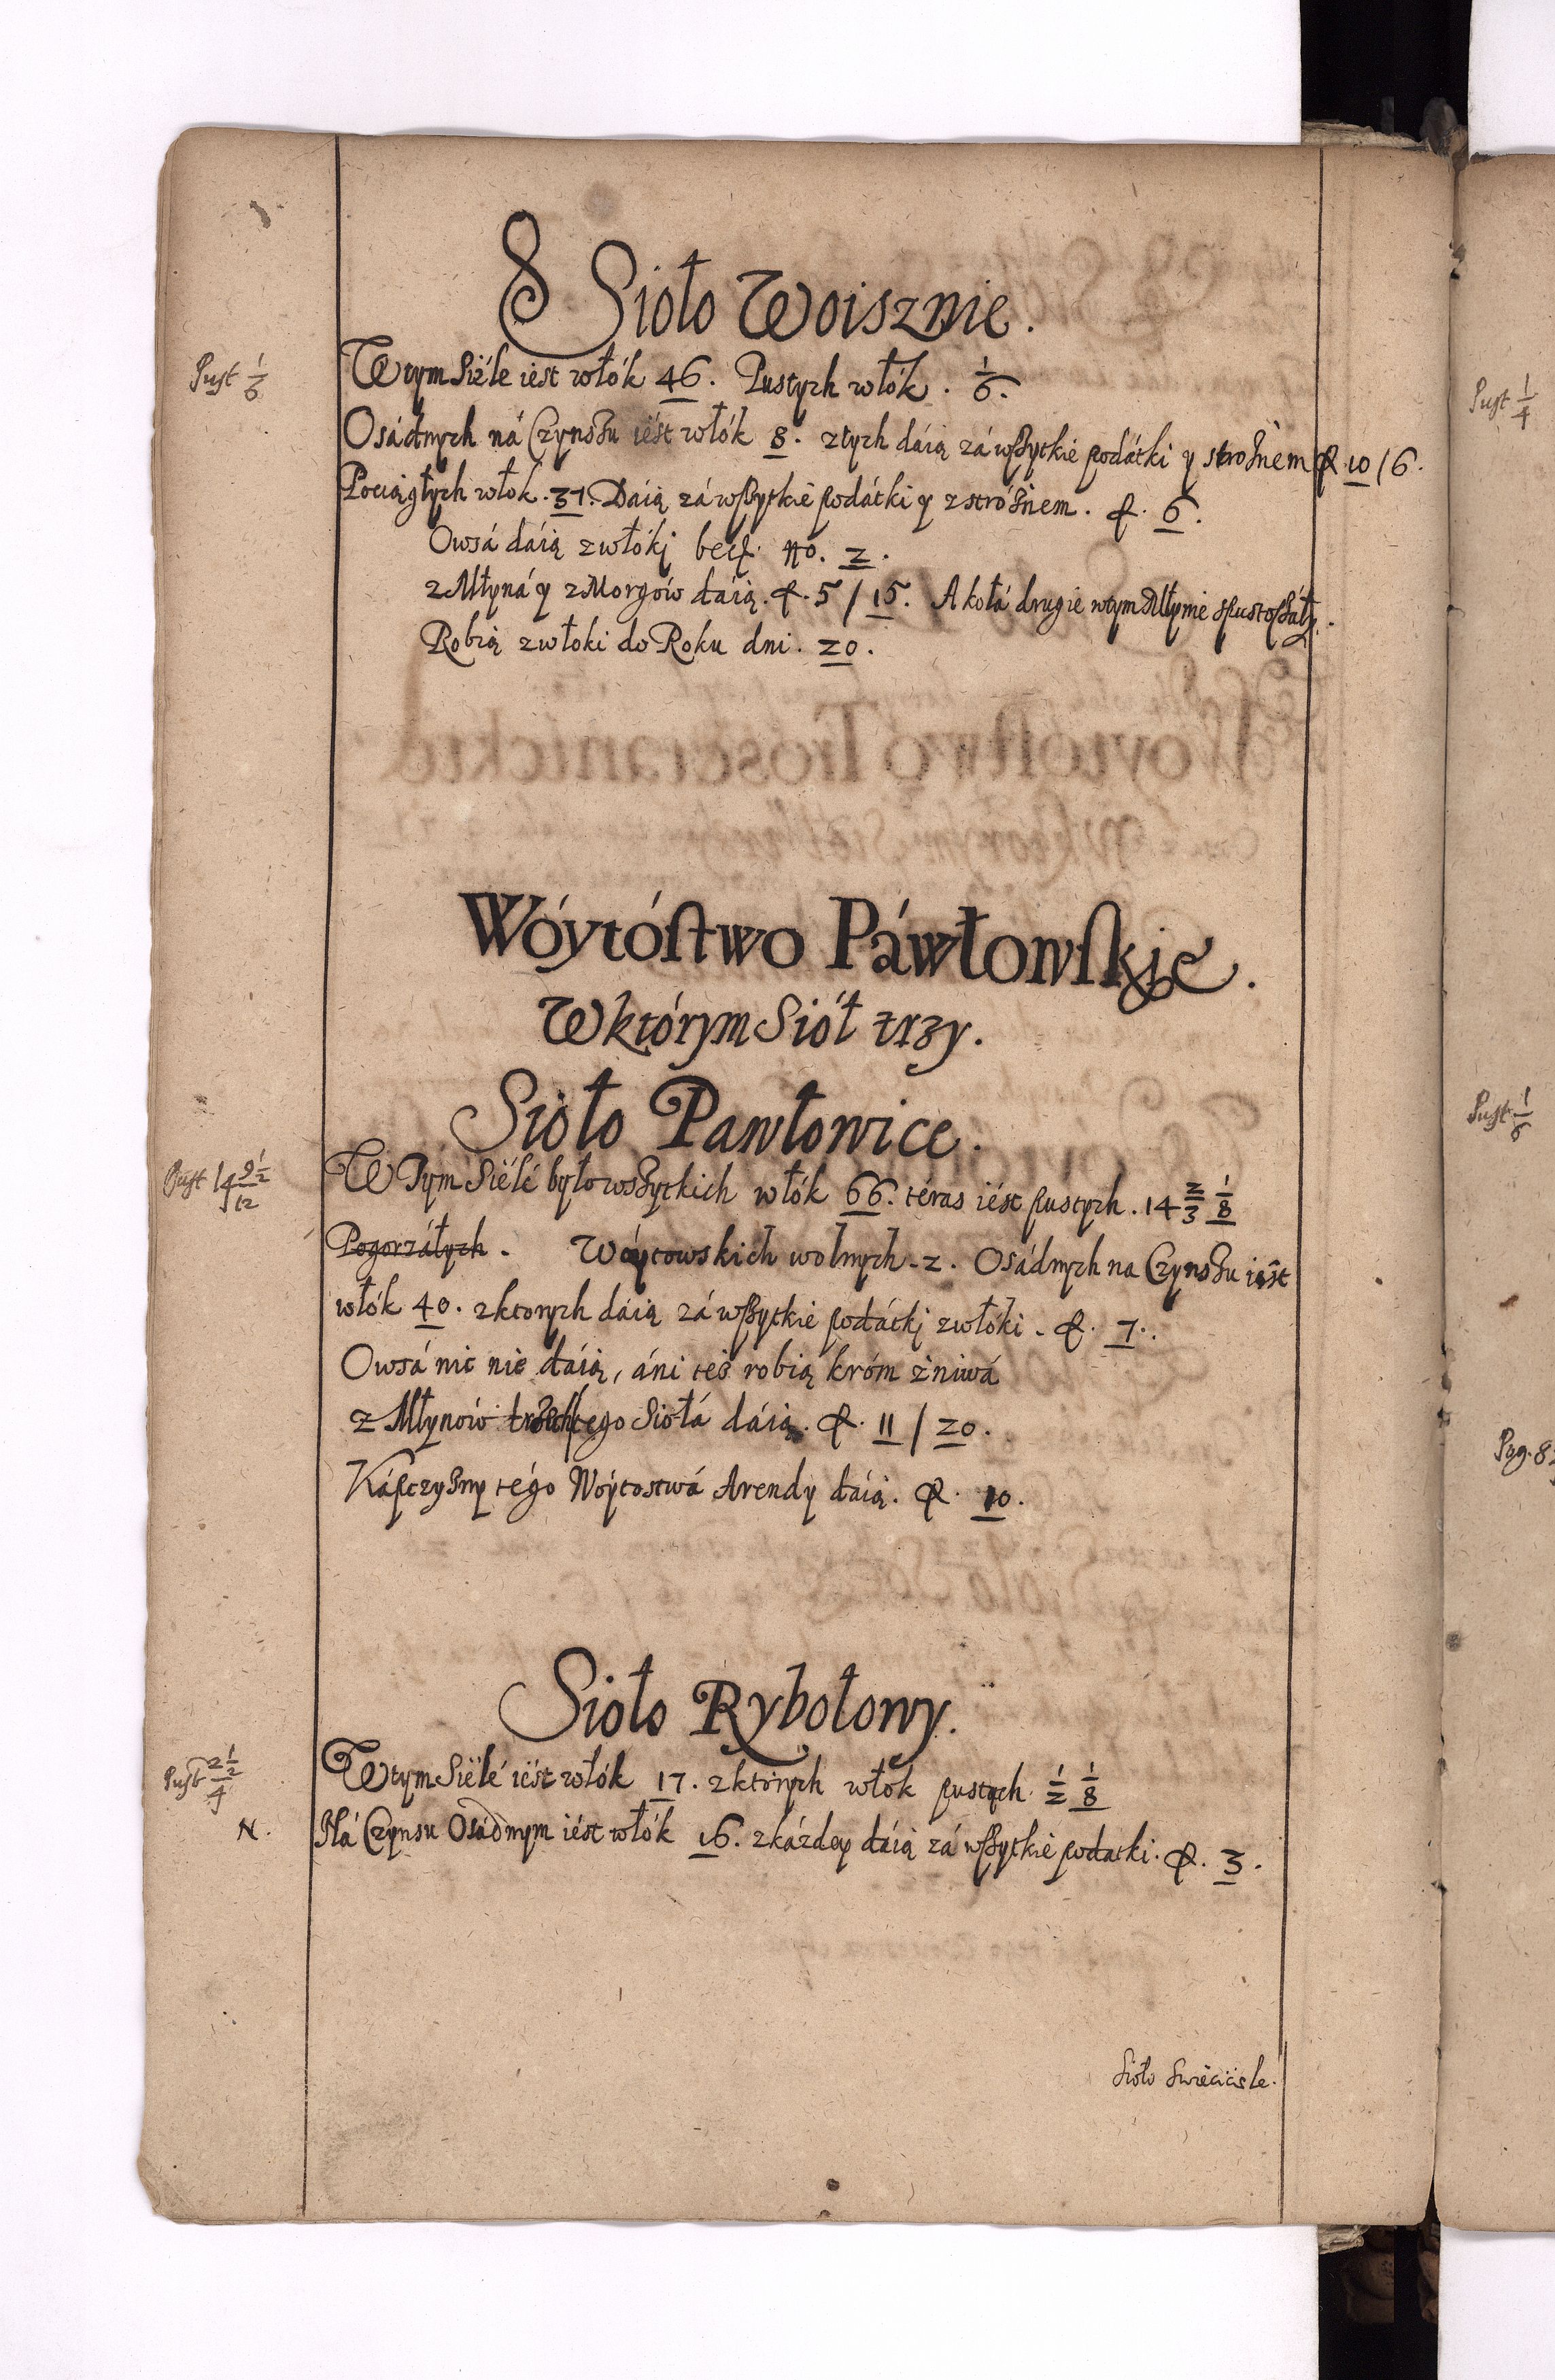 Sioło Woisznie.
Pust 1/6
W tym Siéle iest włók 46. Pustych włók. 1/6.
Osádnych ná Czynszu iést włók 8. z tych dáią zá wszytkie podátki y stróżnem fl. 10 / 6.
Pociągłych włok. 37. Dáią zá wszytkie podátki y z stróżnem. fl. 6.
Owsá dáią z włóki becz. no. 2.
z Młyná y z Morgów dáią. fl. 5 / 15. A kołá drugie w tym Młynie spustoszáły.
Robią z włoki do Roku dni. 20.
Wóytóstwo Páwłowskie.
W którym Siół trzy.
Sioło Pawłowice.
Pust 14
W Tym Siélé było wszytkich włók 66. téras iést pustych. 14 2/3 1/8
Pogorzáłych. Wóytowskich wolnych. 2. Osádnych na Czynszu iést
włók 40. z ktorych dáią zá wszytkie podátki z włóki. fl. 7.
Owsá nic nie dáią, áni też robią króm żniwá
z Młynów trzech tego Siołá dáią. fl. 11 / 20.
Kápczyzny tégo Wóytostwá Arendy dáią. fl. 10.
Sioło Rybołowy.
Pust
W tym Siélé iést włók 17. z których włok pustych 1/2 1/8
N.
Ná Czynsu Osádnym iést włók 16. z káżdey dáią zá wszytkie podatki. fl. 3.
Sioło
Pust 1/4
Pust 1/6
Pag. 8